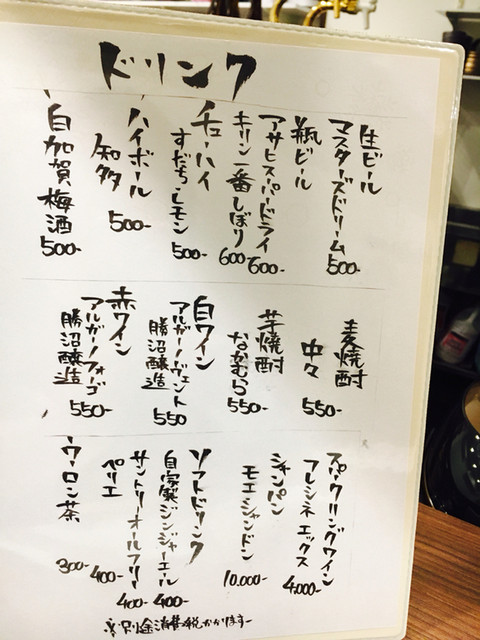 ドリンク
生ビール
マスターズドリーム
500-
瓶ビール
アサヒスーパードライ
600-
キリン一番しぼり
600
チューハイ
すだち・レモン
500-
ハイボール
知多
500-
白加賀梅酒
500-
麦焼酎
中々
550-
芋焼酎
なかむら
550-
白ワイン
アルガーノヴェント
勝沼醸造
550
赤ワイン
アルガーノフォーゴ
勝沼醸造
550-
スパークリングワイン
フレシネエックス
4.000-
シャンパン
モエシャンドン
10.000-
ソフトドリンク
自家製ジンジャーエール
400-
サントリーオールフリー
400-
ペリエ
400-
ウーロン茶
300-
※別途消費税かかります-